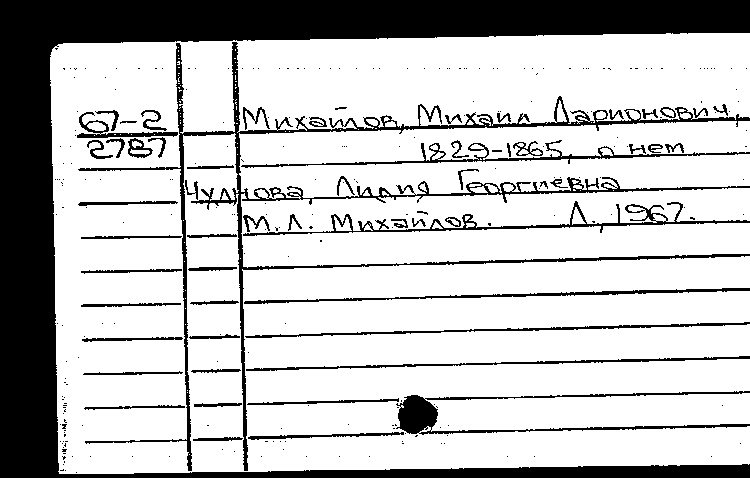 67-2 Михайлов, Михаил Ларионович,
2787 1829-1865, о нем
Чуднова, Лидия Георгиевна
М.Л. Михайлов. Л., 1967.